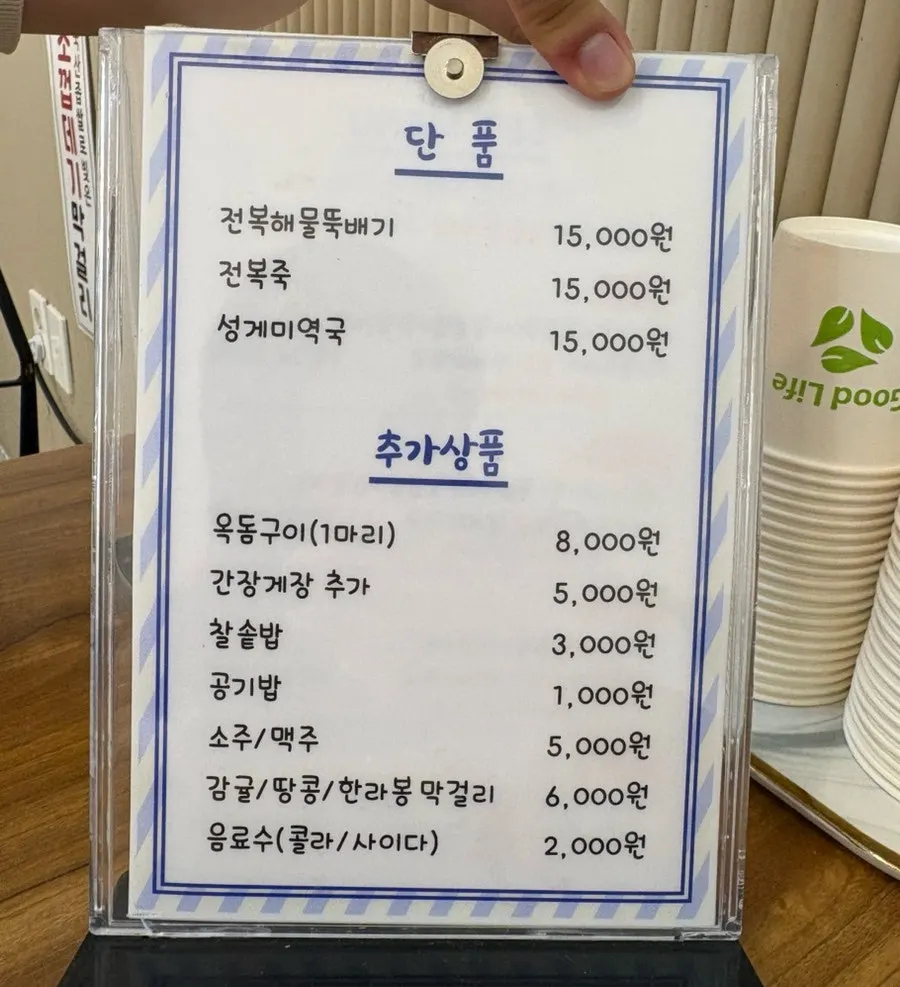 단 품
전복해물뚝배기 15,000원
전복죽 15,000원
성게미역국 15,000원
추가상품
옥돔구이(1마리) 8,000원
간장게장 추가 5,000원
찰솥밥 3,000원
공기밥 1,000원
소주/맥주 5,000원
감귤/땅콩/한라봉 막걸리 6,000원
음료수(콜라/사이다) 2,000원
Good Life